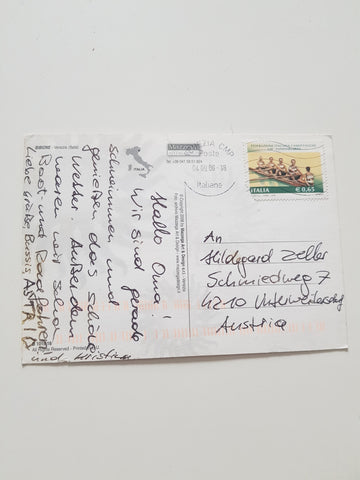 BIBIONE - Venezia (Italia)
ITALIA
VENEZIA CMP
Poste
Italiane
ITALIA € 0,65
Hallo Oma!
Wir sind gerade
schwimmen und
genießen das schöne
Wetter. Außerdem
waren wir schon
Boot und Rad fahren
Liebe Grüße, Bussis, ASTRID
und Christian
An
Hildegard Zeller
Schmiedweg 7
4210 Unterweitersdorf
Austria
All Rights Reserved - Printed